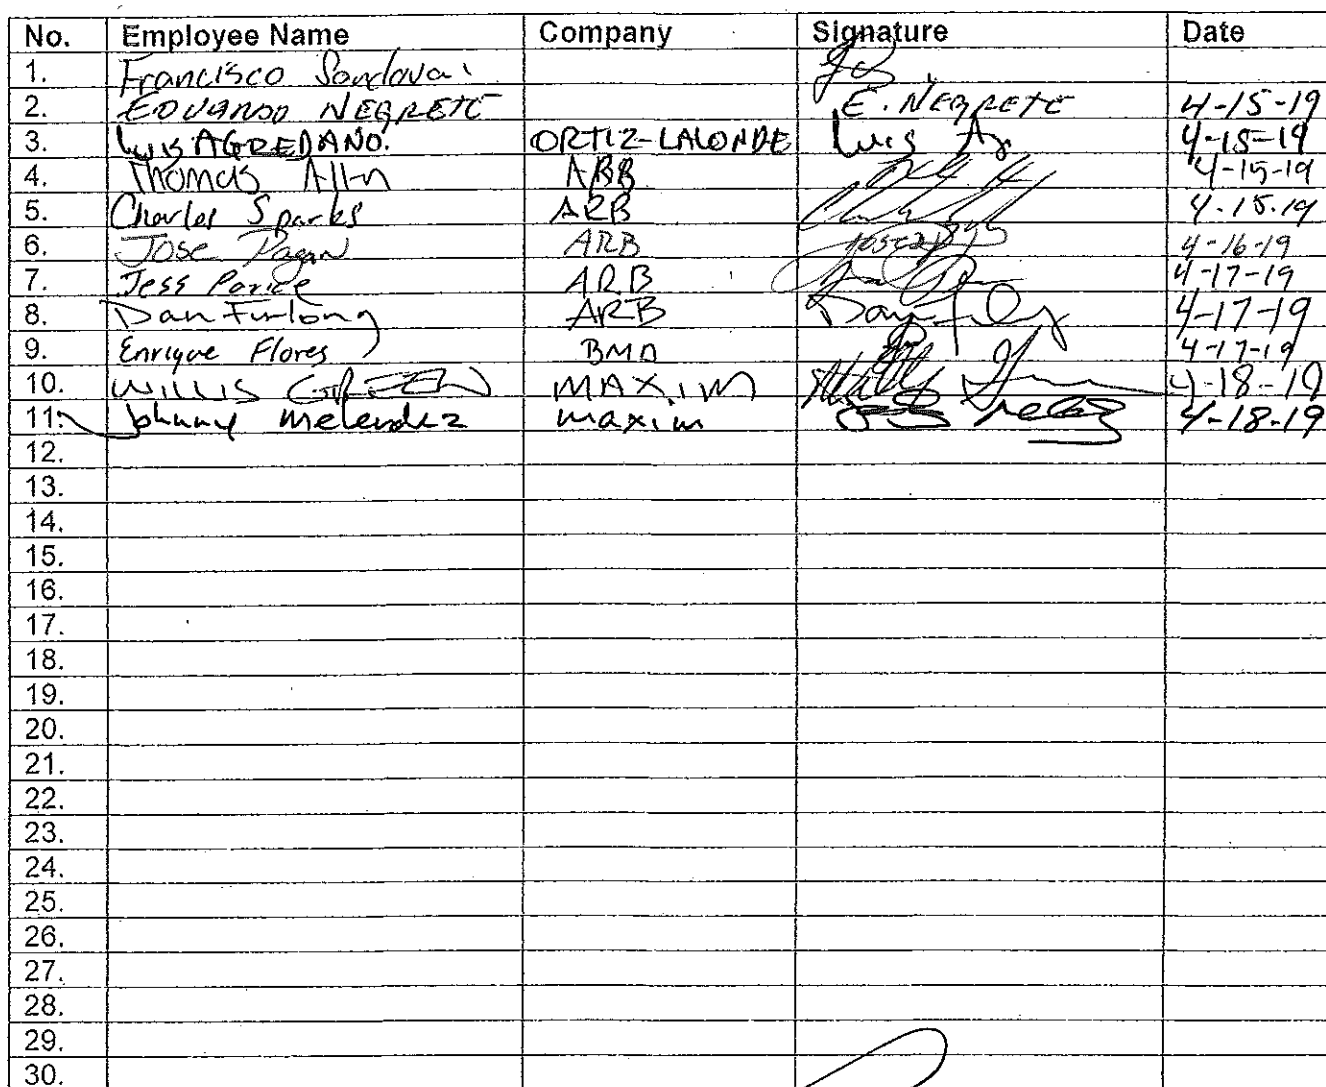 No. Employee Name Company Signature Date
1. Francisco Sandoval
2. EDUARDO NEGRETE E. NEGRETE 4-15-19
3. Luis AGREDANO. ORTIZ-LALONDE Luis 4-15-19
4. Thomas Allen ARB 4-15-19
5. Charles Sparks ARB 4.15.19
6. Jose Pagan ARB 4-16-19
7. Jess ARB 4-17-19
8. Dan Furlong ARB 4-17-19
9. Enrique Flores 4-17-19
10. WILLIS GREEN MAXIM 4-18-19
11. Johnny Melendez maxim 4-18-19
12.
13.
14.
15.
16.
17.
18.
19.
20.
21.
22.
23.
24.
25.
26.
27.
28.
29.
30.